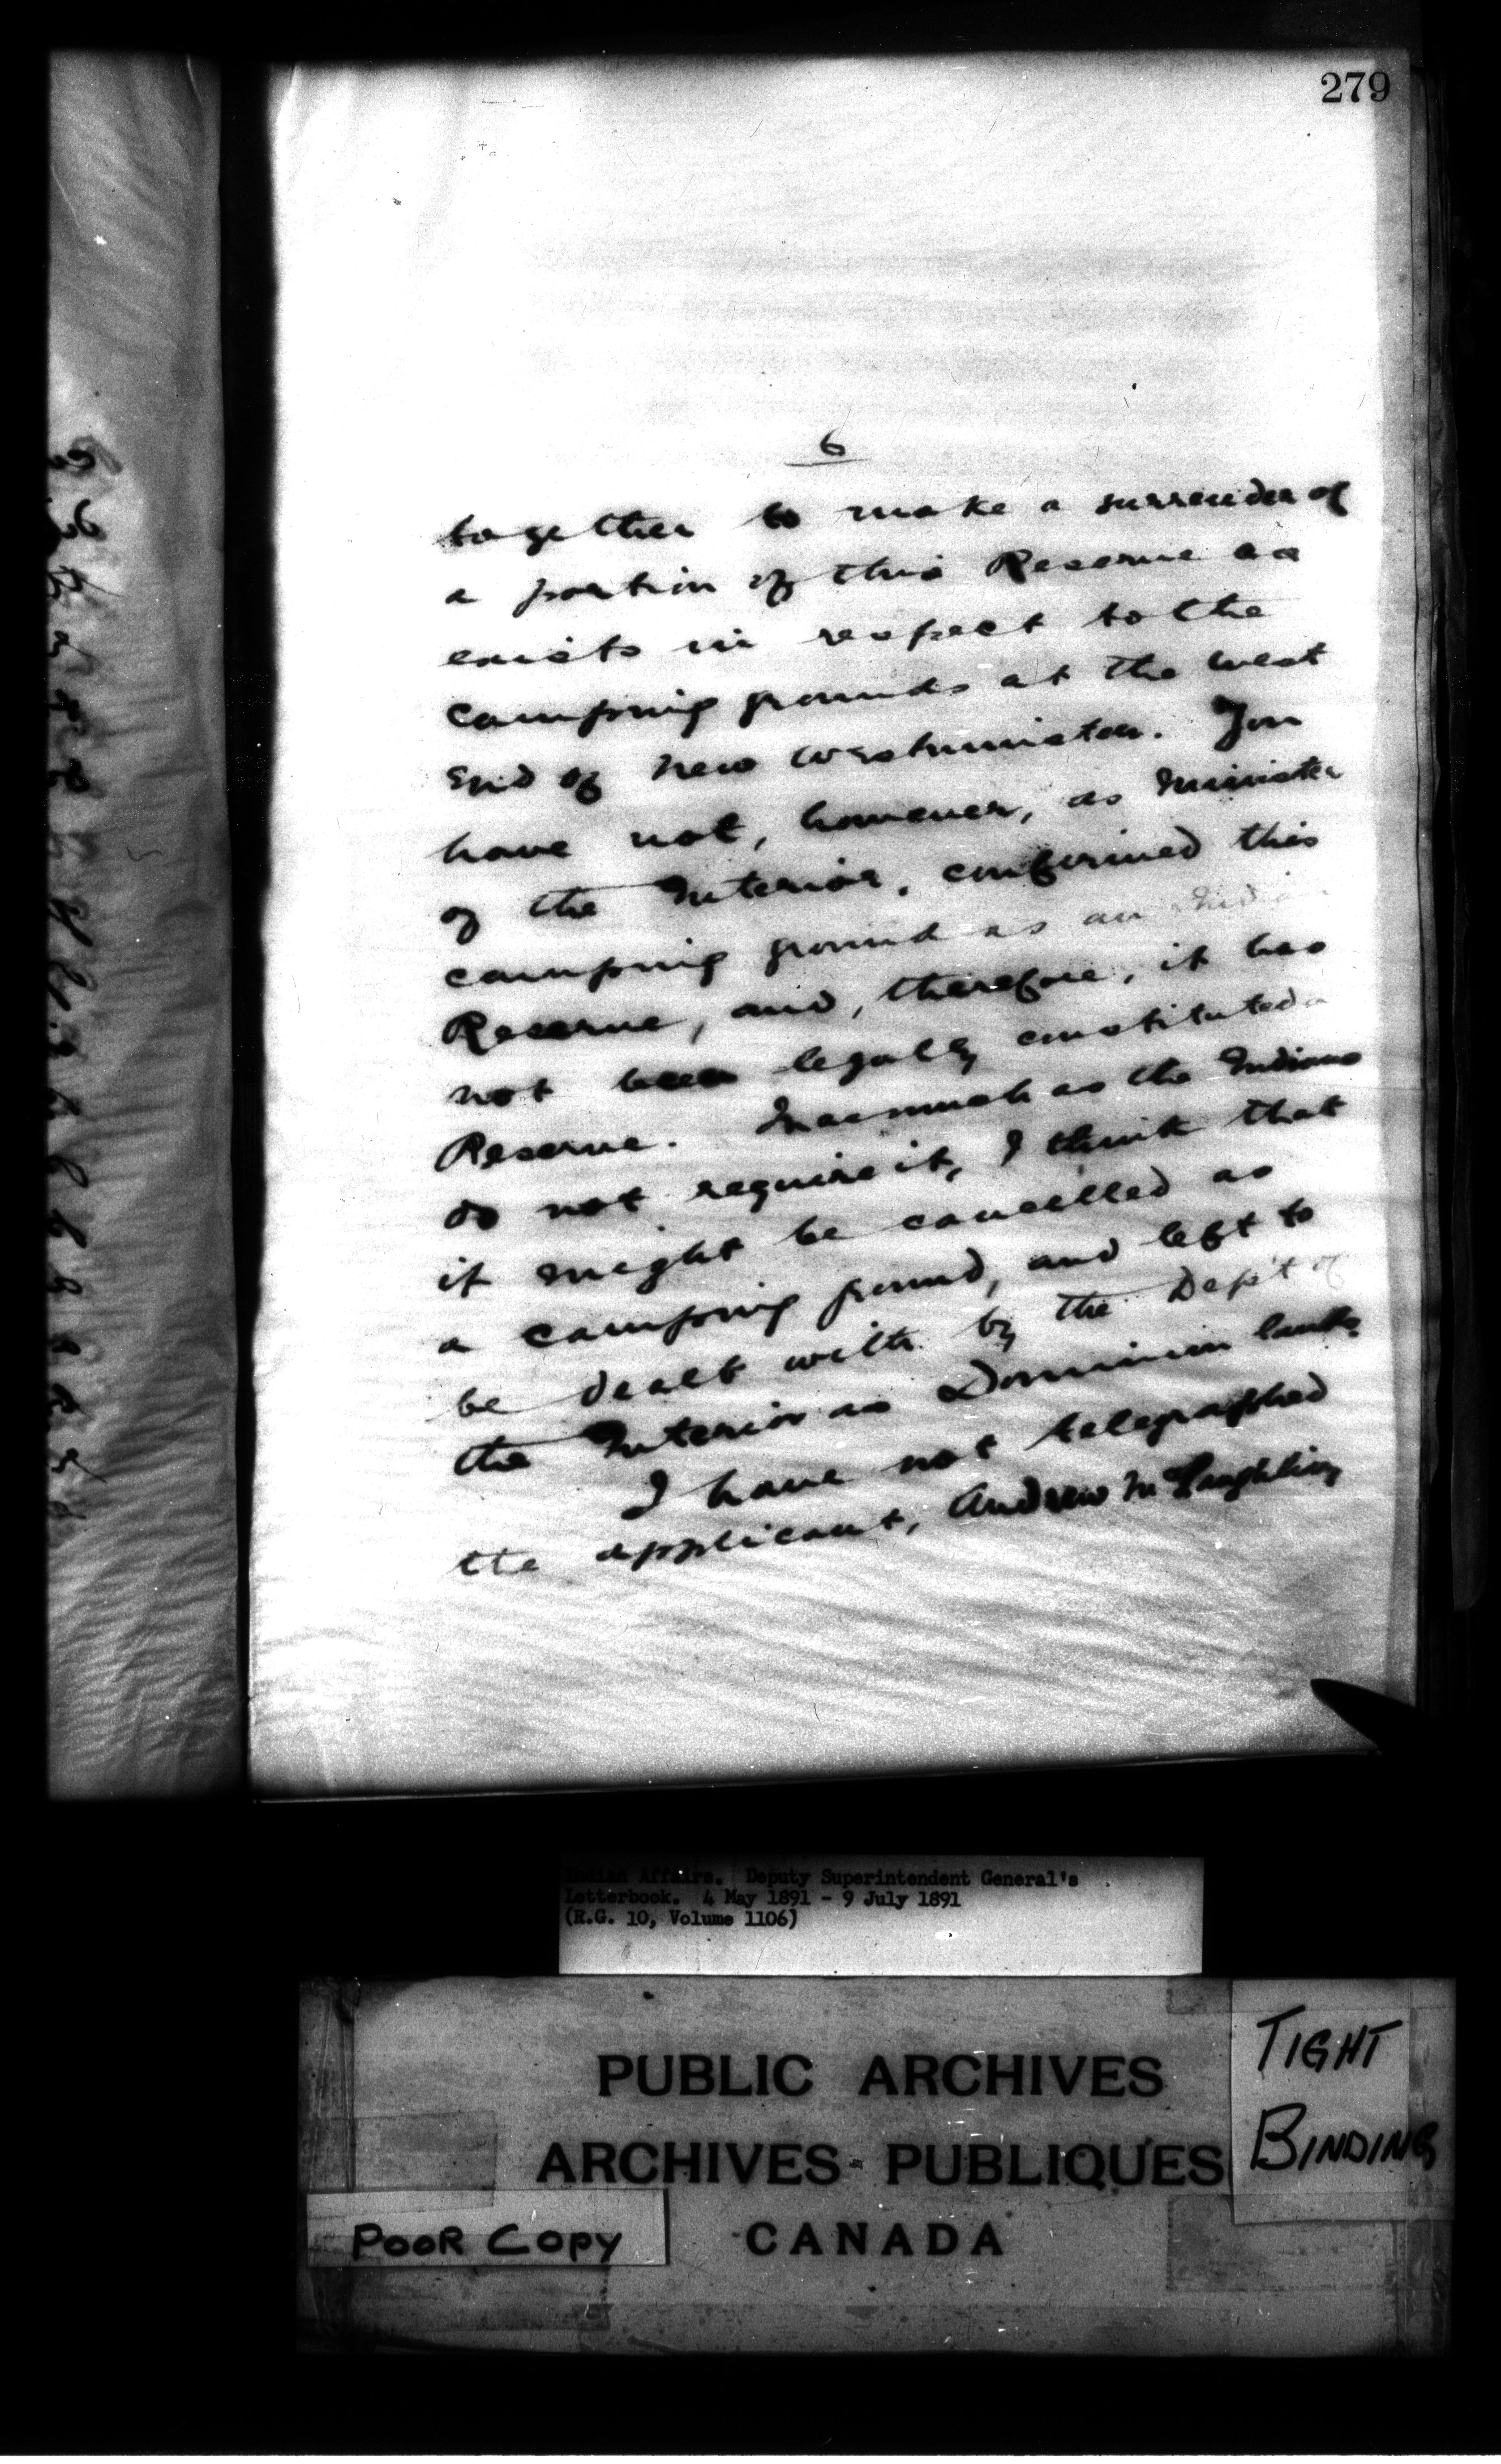 279
6
together to make a surrender of
a portion of this Reserve as
exists in respect to the
camping grounds at the west
end of New Westminster. You
have not, however, as Minister
of the Interior, confirmed this
camping ground as an Indian
Reserve, and, therefore, it has
not been legally constituted a
Reserve. Inasmuch as the Indians
do not require it, I think that
it might be cancelled as
a camping ground, and left to
be dealt with by the Dep't of
the Interior as Dominion lands.
I have not telegraphed
the applicant, Andrew McLaughlin,
Indian Affairs. Deputy Superintendent General's
Letterbook. 4 May 1891 - 9 July 1891
(R.G. 10, Volume 1106)
PUBLIC ARCHIVES
ARCHIVES PUBLIQUES
CANADA
TIGHT
BINDING
POOR COPY